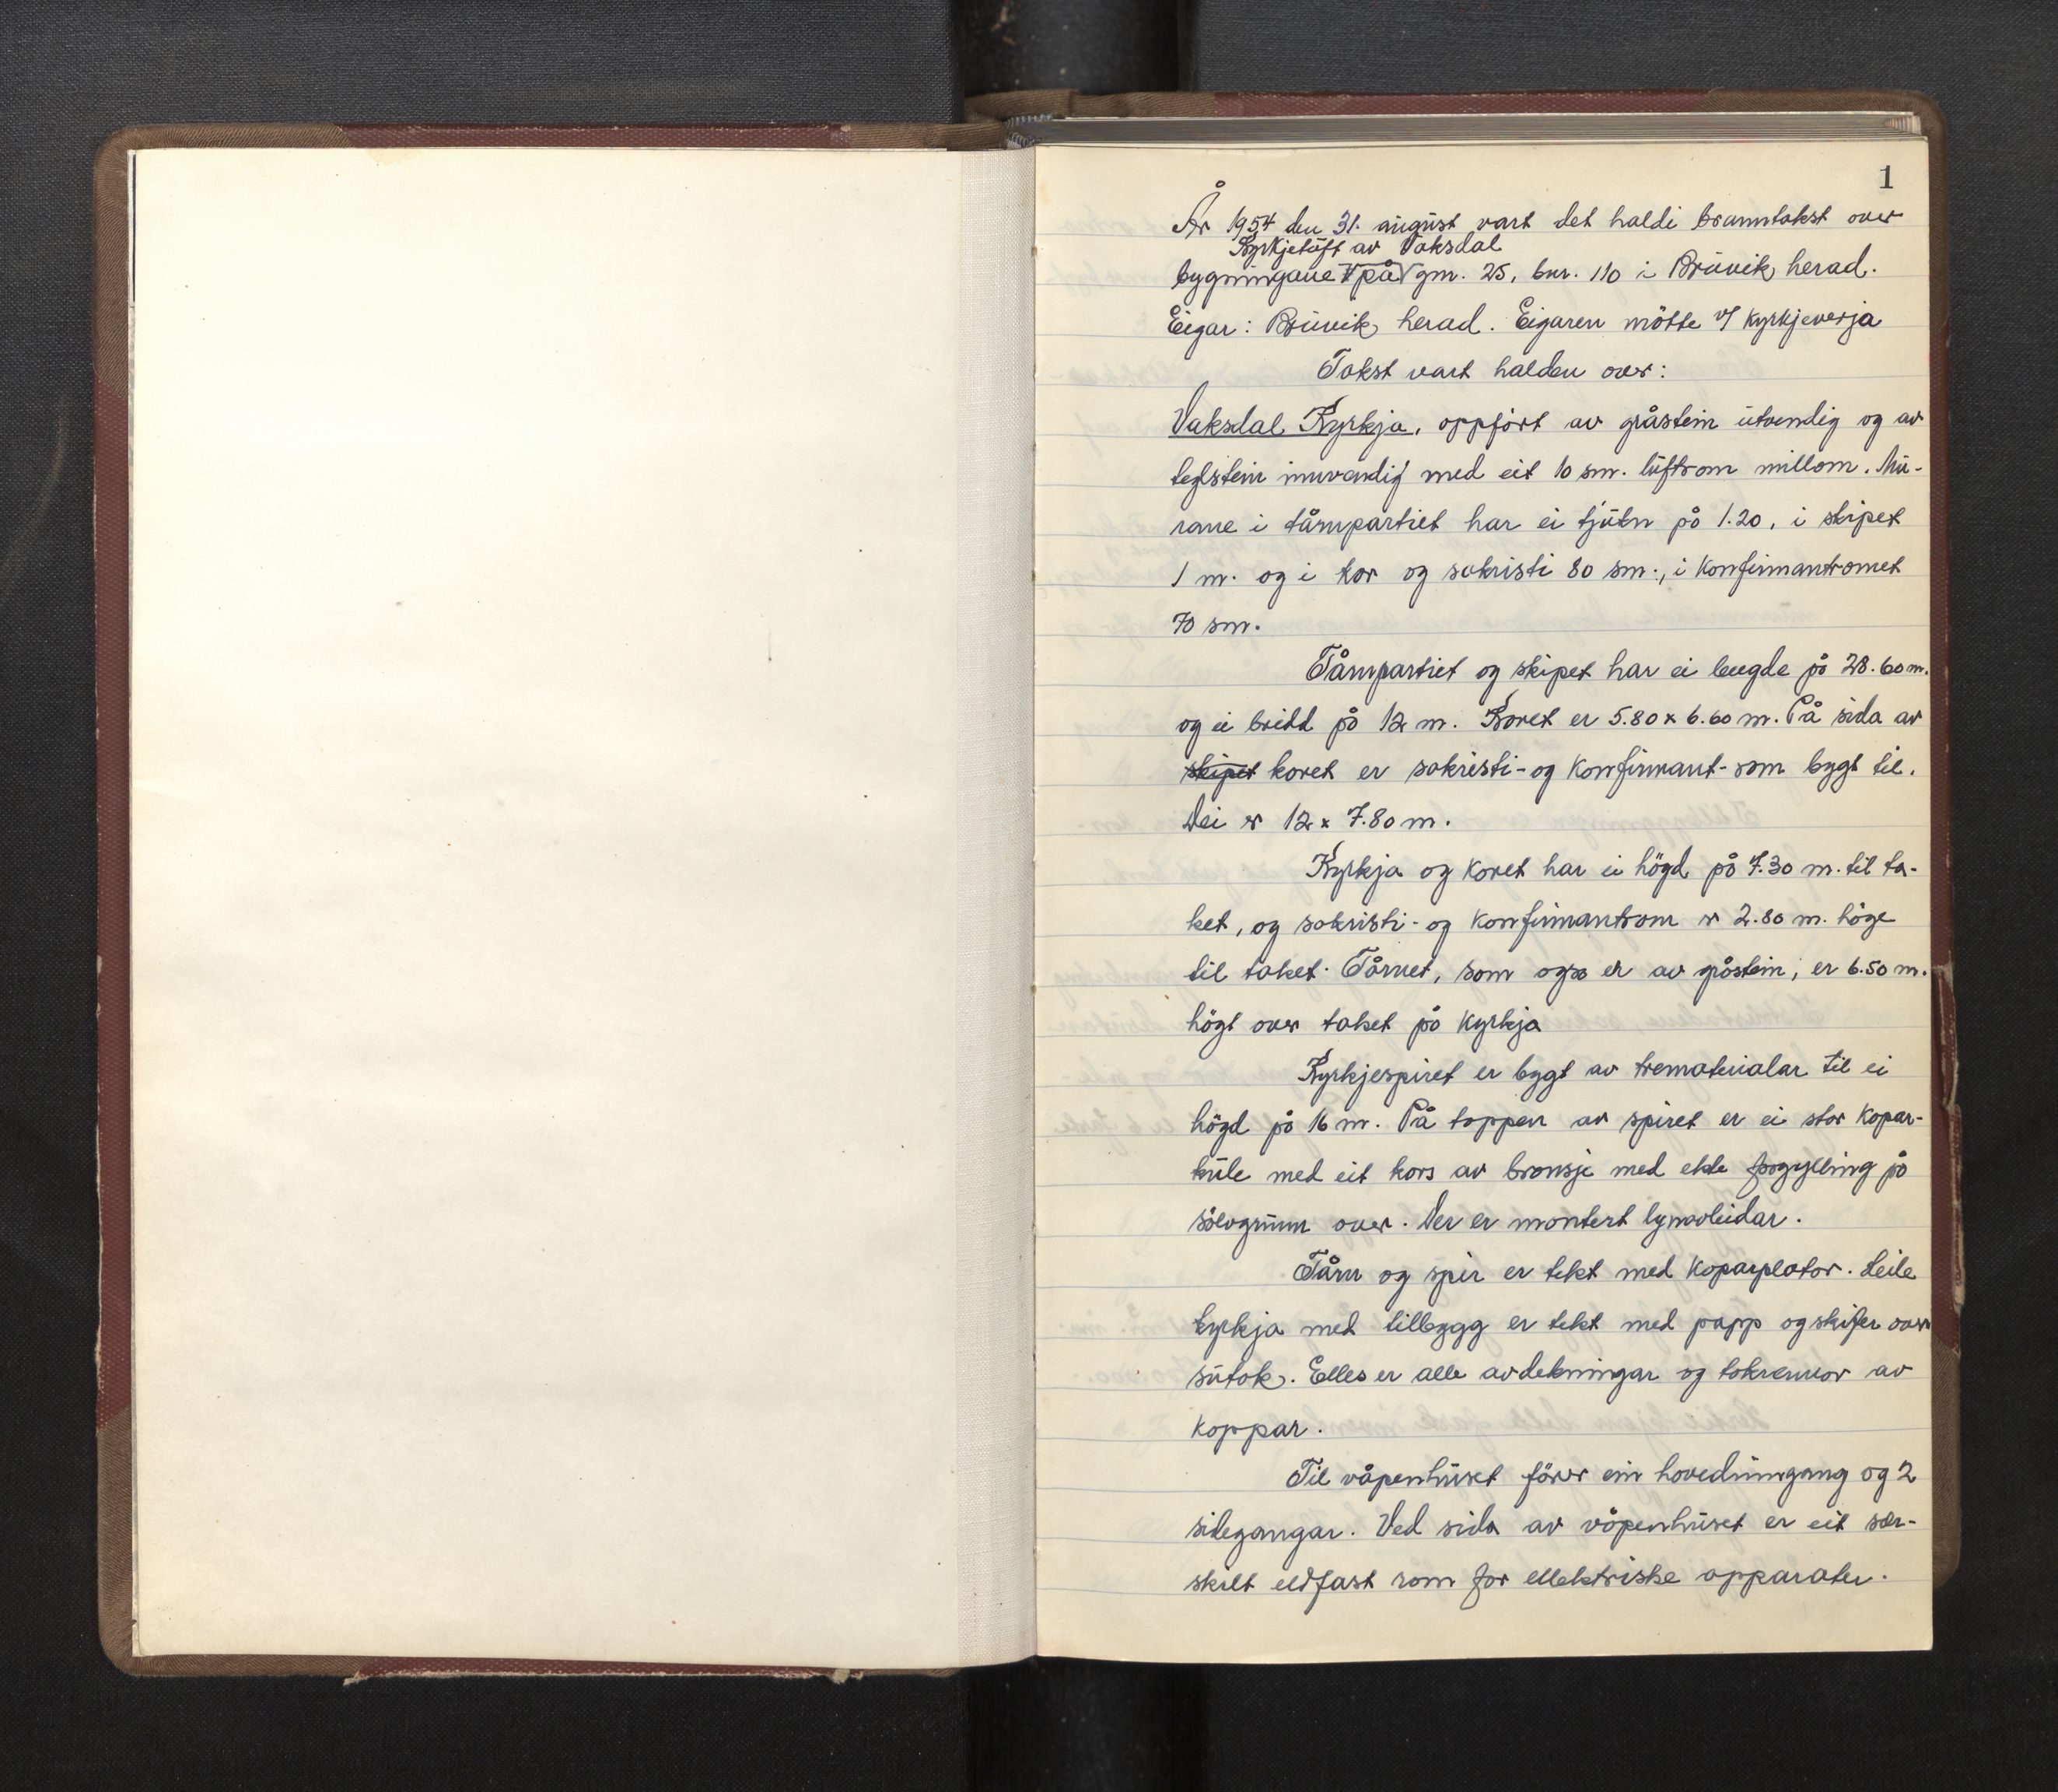 1
År 1954 den 31. august vart det haldi branntakst over
Kyrkjetuft av Vaksdal
bygningane på gnr. 25, bnr. 110 i Bruvik herad.
Eigar: Bruvik herad. Eigaren mötte v/ kyrkjeverja
Takst vart halden over:
Vaksdal Kyrkja, oppfört av gråstein utvendig og av
teglstein innvendig med eit 10 sm. luftrom millom. Mu-
rane i tårnpartiet har ei tjukn på 1.20, i skipet
1 m. og i kor og sakristi 80 sm., i konfirmantromet
70 sm.
Tårnpartiet og skipet har ei lengde på 28.60 m.
og ei breidd på 12 m. Koret er 5.80 x 6.60 m. På sida av
skipet koret er sakristi- og konfirmant-rom bygt til.
Dei er 12 x 7.80 m.
Kyrkja og koret har ei högd på 7.30 m. til ta-
ket, og sakristi- og konfirmantrom er 2.80 m. höge
til taket. Tårnet, som også er av gråstein, er 6.50 m.
högt over taket på kyrkja
Kyrkjespiret er bygt av trematerialar til ei
högd på 16 m. På toppen av spiret er ei stor kopar-
kule med eit kors av bronsje med ekte forgylling på
sölvgrunn over. Der er montert lynavleidar.
Tårn og spir er tekt med koparplator. Heile
kyrkja med tilbygg er tekt med papp og skifer over
sutak. Elles er alle avdekningar og takrennor av
koppar.
Til våpenhuset förer ein hovedinngang og 2
sidegangar. Ved sida av våpenhuset er eit sær-
skilt eldfast rom for ellektriske apparater.